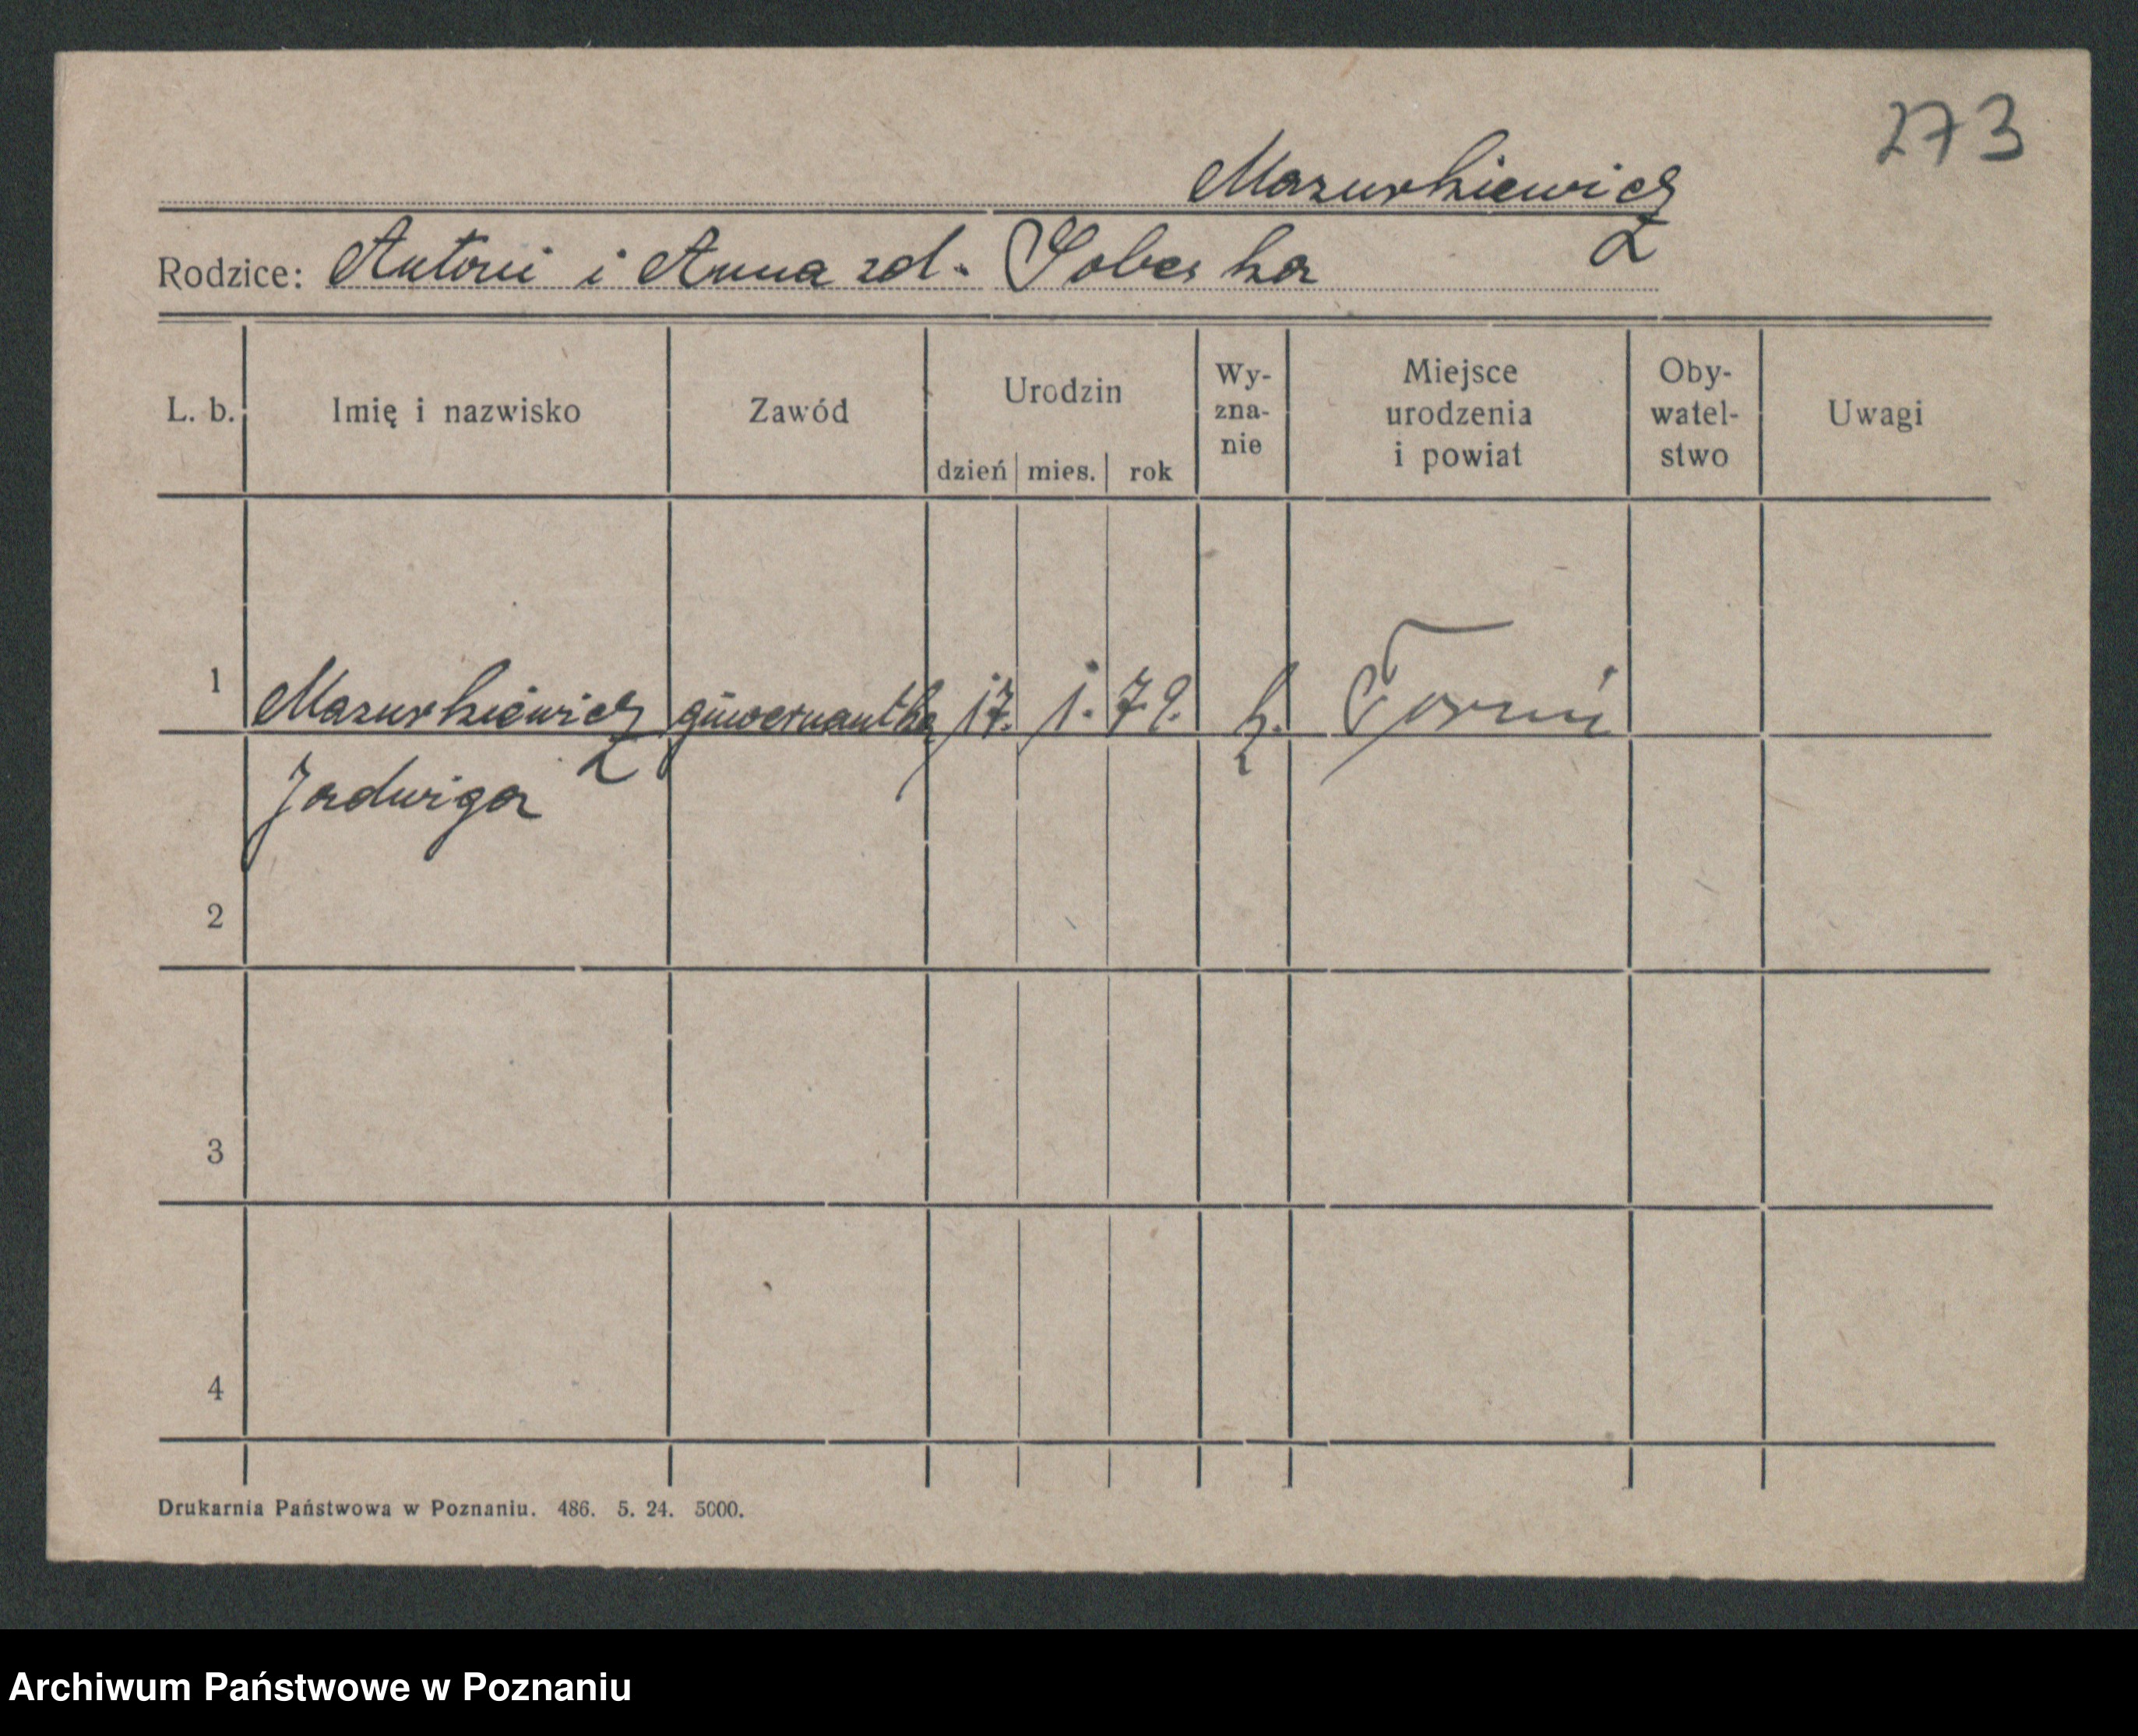 273
Mazurkiewicz
Rodzice: Antoni i Anna zd. Sobeska
L. b. Imię i nazwisko Zawód Urodzin dzień mies. rok Wy-zna-nie Miejsce urodzenia i powiat Oby-watel-stwo Uwagi
1 Mazurkiewicz guwernantka 17. 1. 79. k. Toruń
Jadwiga
2
3
4
Drukarnia Państwowa w Poznaniu. 486. 5. 24. 5000.
Archiwum Państwowe w Poznaniu